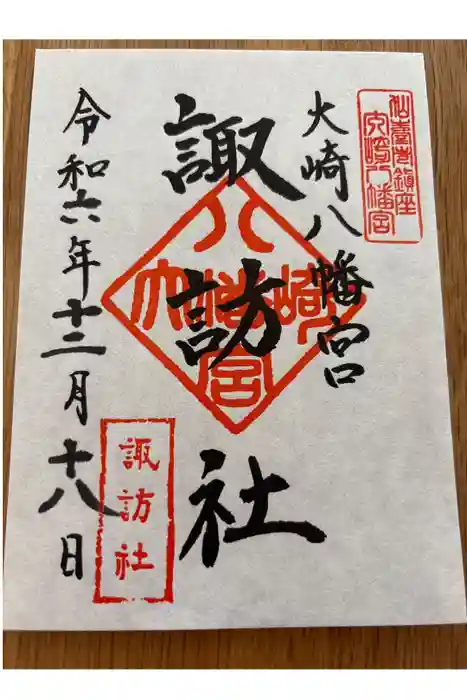 仙臺総鎮座
大崎八幡宮
大崎八幡宮
諏訪社
大崎八幡宮
諏訪社
令和六年十二月十八日